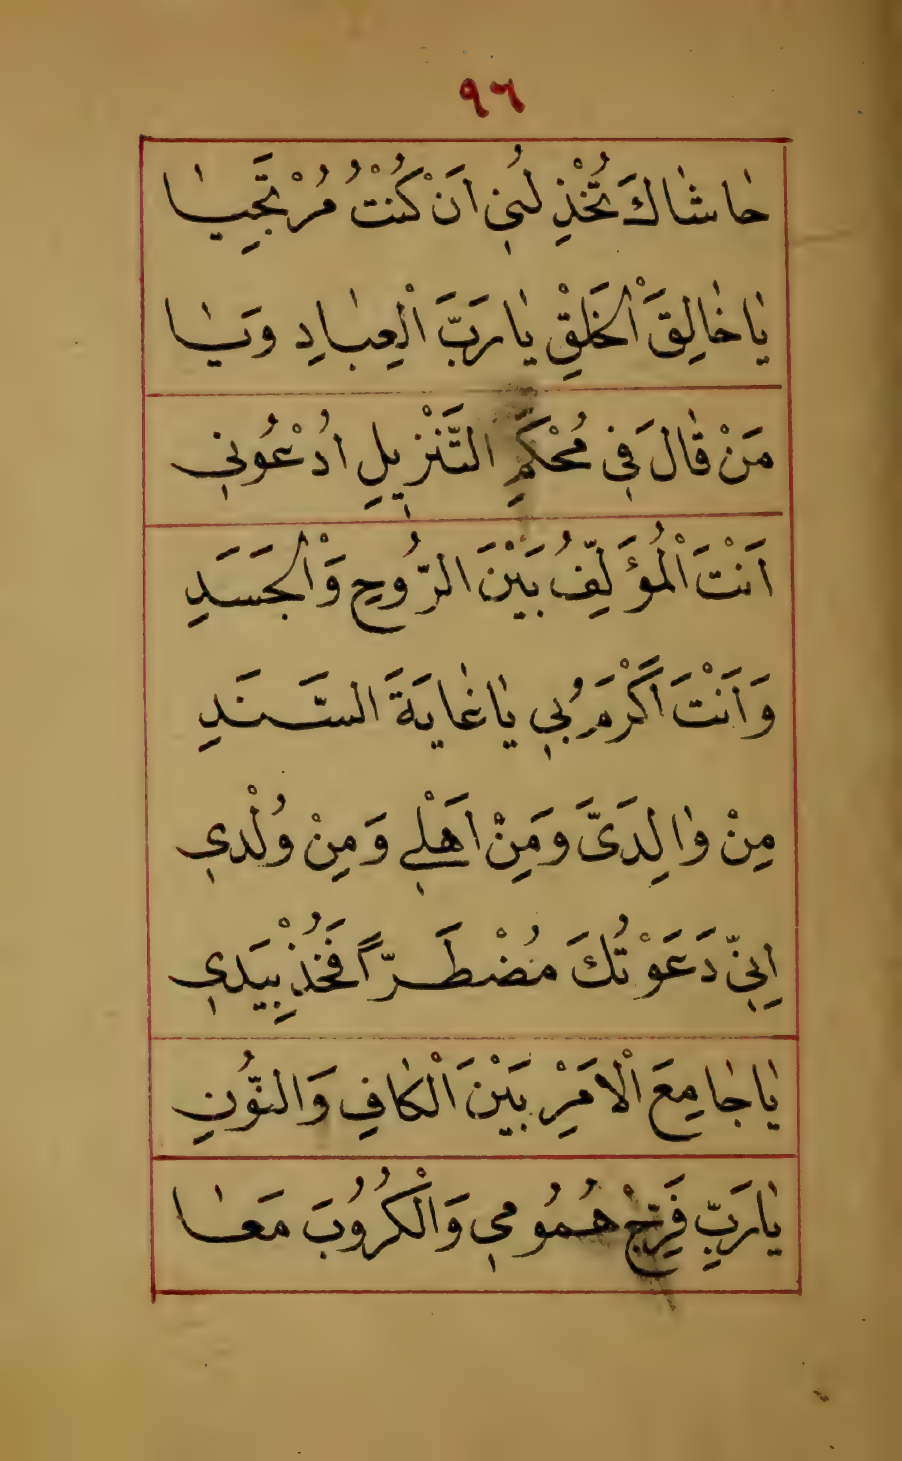 ٩٦
حَاشَاكَ تُخْذِلُنِي اَنْ كُنْتُ مُرْتَجِيَا
يَا خَالِقَ الْخَلْقِ يَا رَبَّ الْعِبَادِ وَيَا
مَنْ قَالَ فِي مُحْكَمِ التَّنْزِيلِ ادُْعُونِي
اَنْتَ الْمُؤَلِّفُ بَيْنَ الرُّوحِ وَالْجَسَدِ
وَاَنْتَ اَكْرَمُ بِي يَا غَايَةَ السَّنَدِ
مِنْ وَالِدَىَّ وَمِنْ اَهْلِي وَمِنْ وُلْدِي
اِنِّي دَعَوْتُكَ مُضْطَرًّا فَخُذْ بِيَدِي
يَا جَامِعَ الْاَمْرِ بَيْنَ الْكَافِ وَالنُّونِ
يَا رَبِّ فَرِّجْ هُمُومِي وَالْكُرُوبَ مَعَا